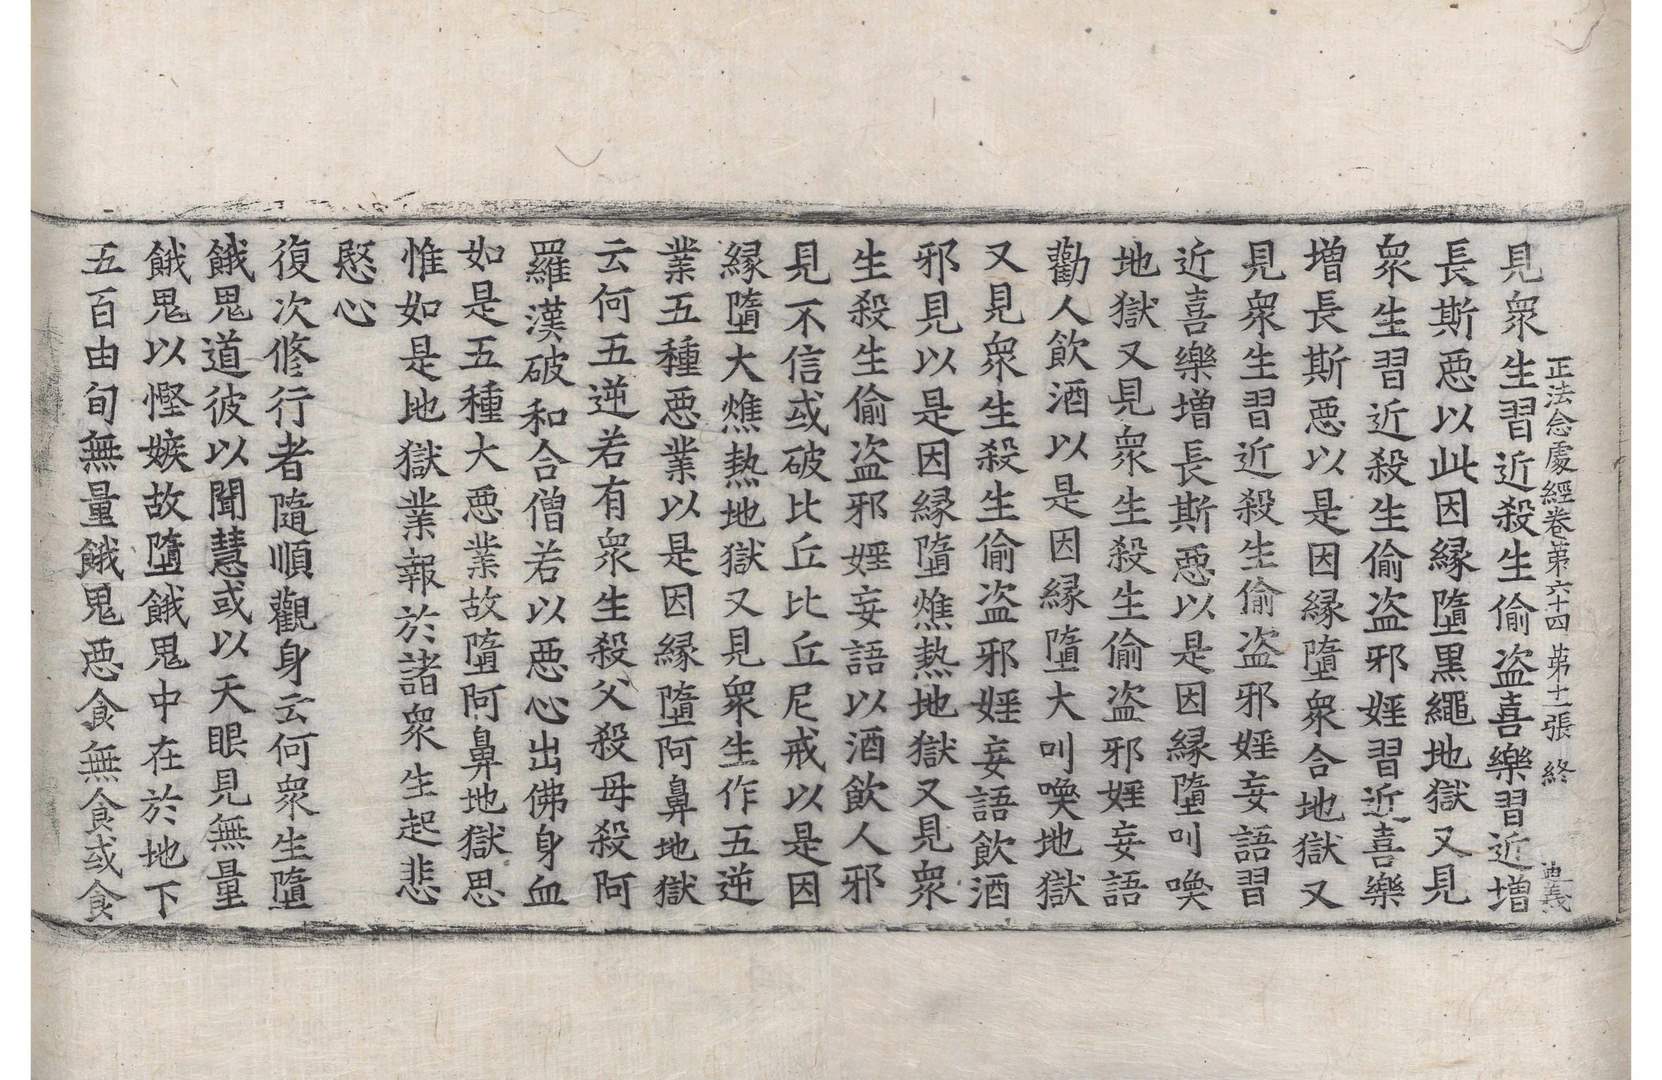 正法念處經卷第六十四 第十一張 終 迪義
見衆生習近殺生偷盗喜樂習近增
長斯惡以此因緣墮黒繩地獄又見
衆生習近殺生偷盗邪婬習近喜樂
增長斯惡以是因緣墮衆合地獄又
見衆生習近殺生偷盗邪婬妄語習
近喜樂增長斯惡以是因緣墮叫喚
地獄又見衆生殺生偷盗邪婬妄語
勸人飲酒以是因緣墮大叫喚地獄
又見衆生殺生偷盗邪婬妄語飲酒
邪見以是因緣墮燋熱地獄又見衆
生殺生偷盗邪婬妄語以酒飲人邪
見不信或破比丘比丘尼戒以是因
緣墮大燋熱地獄又見衆生作五逆
業五種惡業以是因緣墮阿鼻地獄
云何五逆若有衆生殺父殺母殺阿
羅漢破和合僧若以惡心出佛身血
如是五種大惡業故墮阿鼻地獄思
惟如是地獄業報於諸衆生起悲
愍心
復次修行者隨順觀身云何衆生墮
餓鬼道彼以聞慧或以天眼見無量
餓鬼以慳嫉故墮餓鬼中在於地下
五百由旬無量餓鬼惡食無食或食